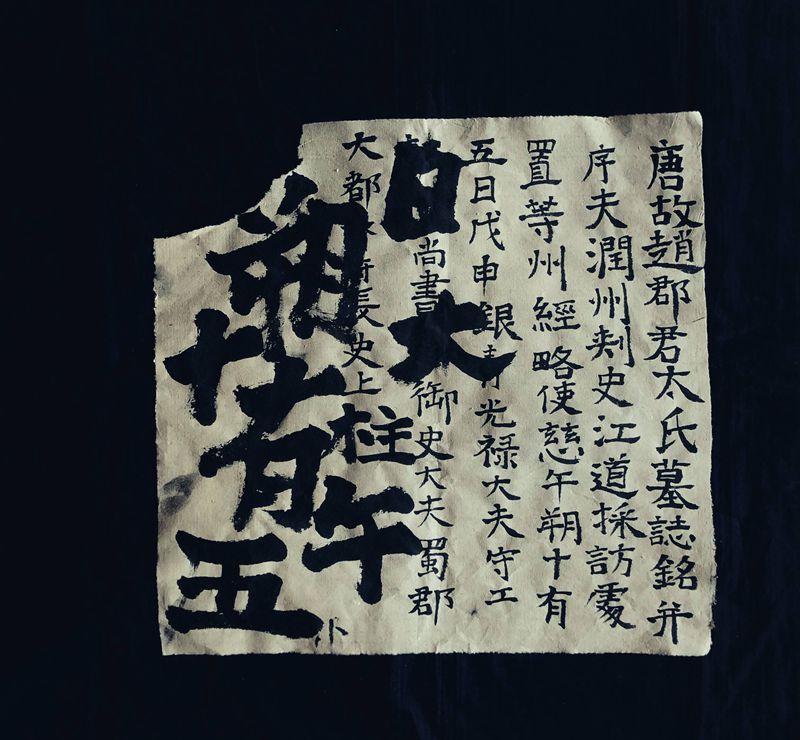 唐故趙郡君太氏墓誌銘并
序夫潤州刾史江道採訪處
置等州經略使慈午朔十有
五日戊申銀青光禄大夫守工
尚書御史大夫蜀郡
大都府長史上柱
日大
午
朔十有五